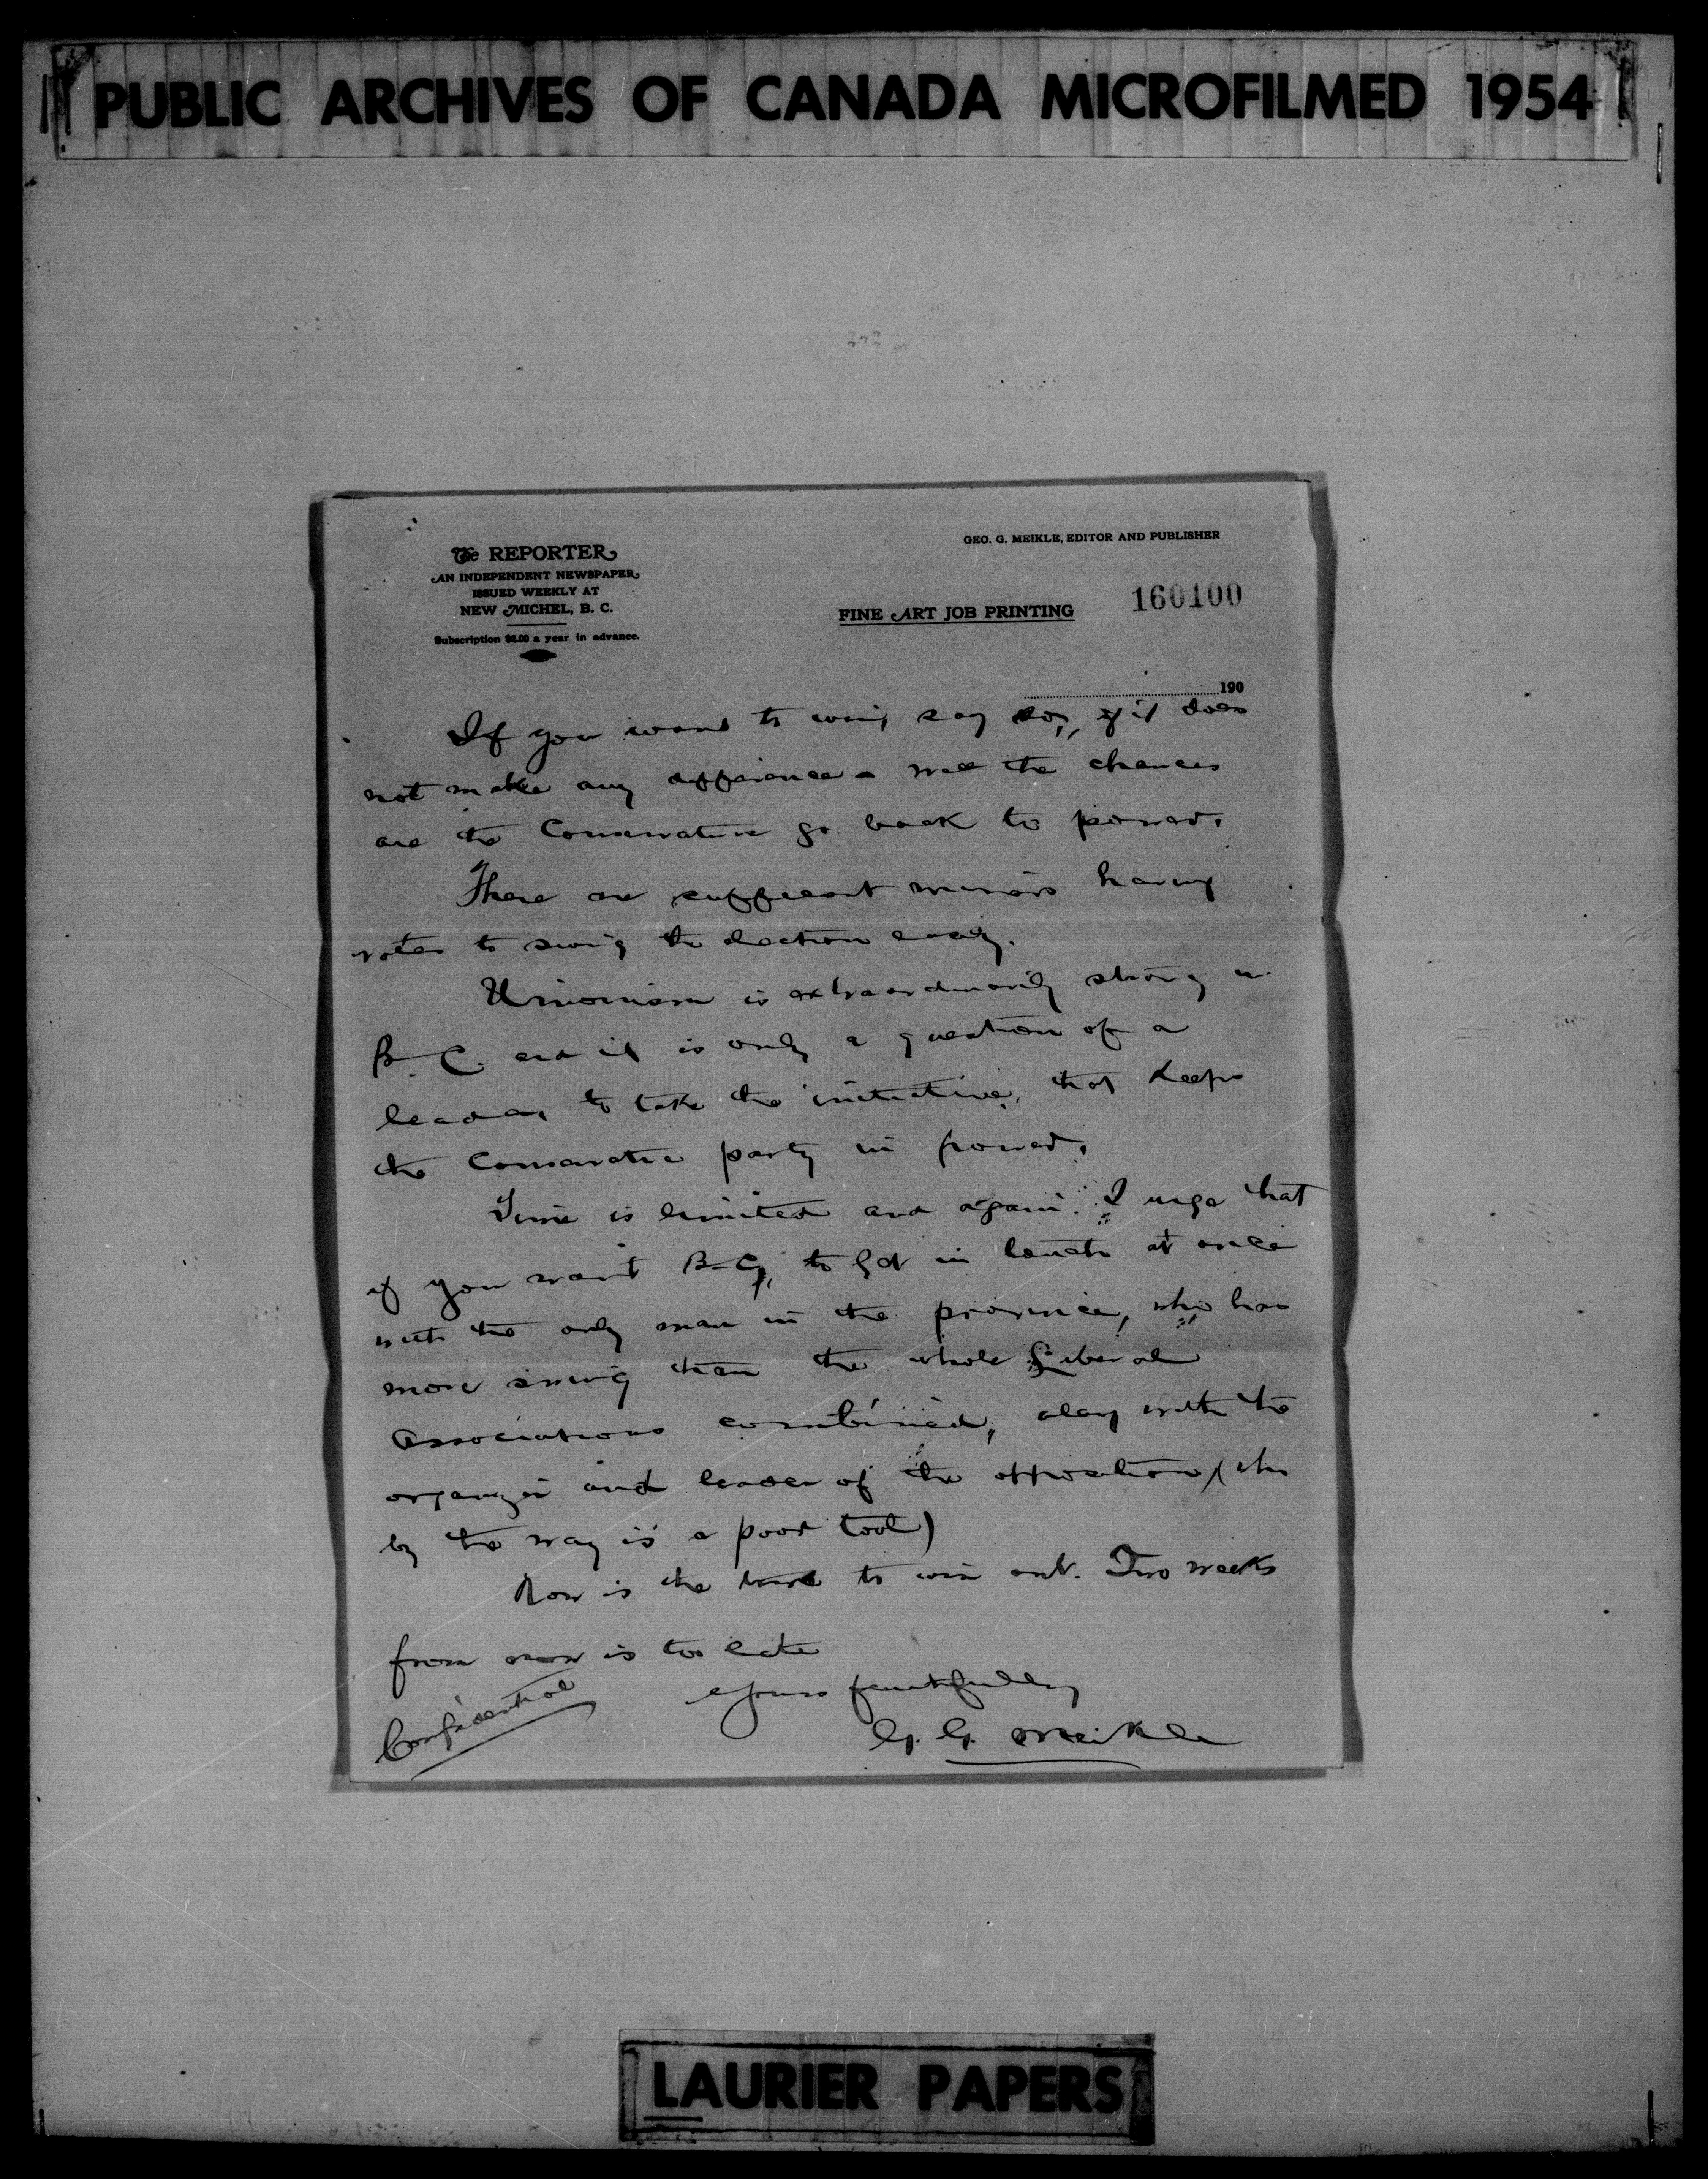 PUBLIC ARCHIVES OF CANADA MICROFILMED 1954
The REPORTER
AN INDEPENDENT NEWSPAPER
ISSUED WEEKLY AT
NEW MICHEL, B. C.
Subscription $2.00 a year in advance.
GEO. G. MEIKLE, EDITOR AND PUBLISHER
FINE ART JOB PRINTING
160100
190
If you want to win, say so, if it does
not make any difference the chances
are the Conservative go back to power.
There are sufficient miners having
votes to swing the election easily.
Unionism is extraordinarily strong in
B. C. and it is only a question of a
leader to take the initiative, that keeps
the Conservative party in power.
Time is limited and again I urge that
if you want B-C, to get in touch at once
with the only man in the province, who has
more swing than the whole Liberal
Associations combined, along with the
organizer and leader of the opposition (who
by the way is a poor tool)
Now is the time to win out. Two weeks
from now is too late
Yours faithfully
G. G. Meikle
Confidential
LAURIER PAPERS